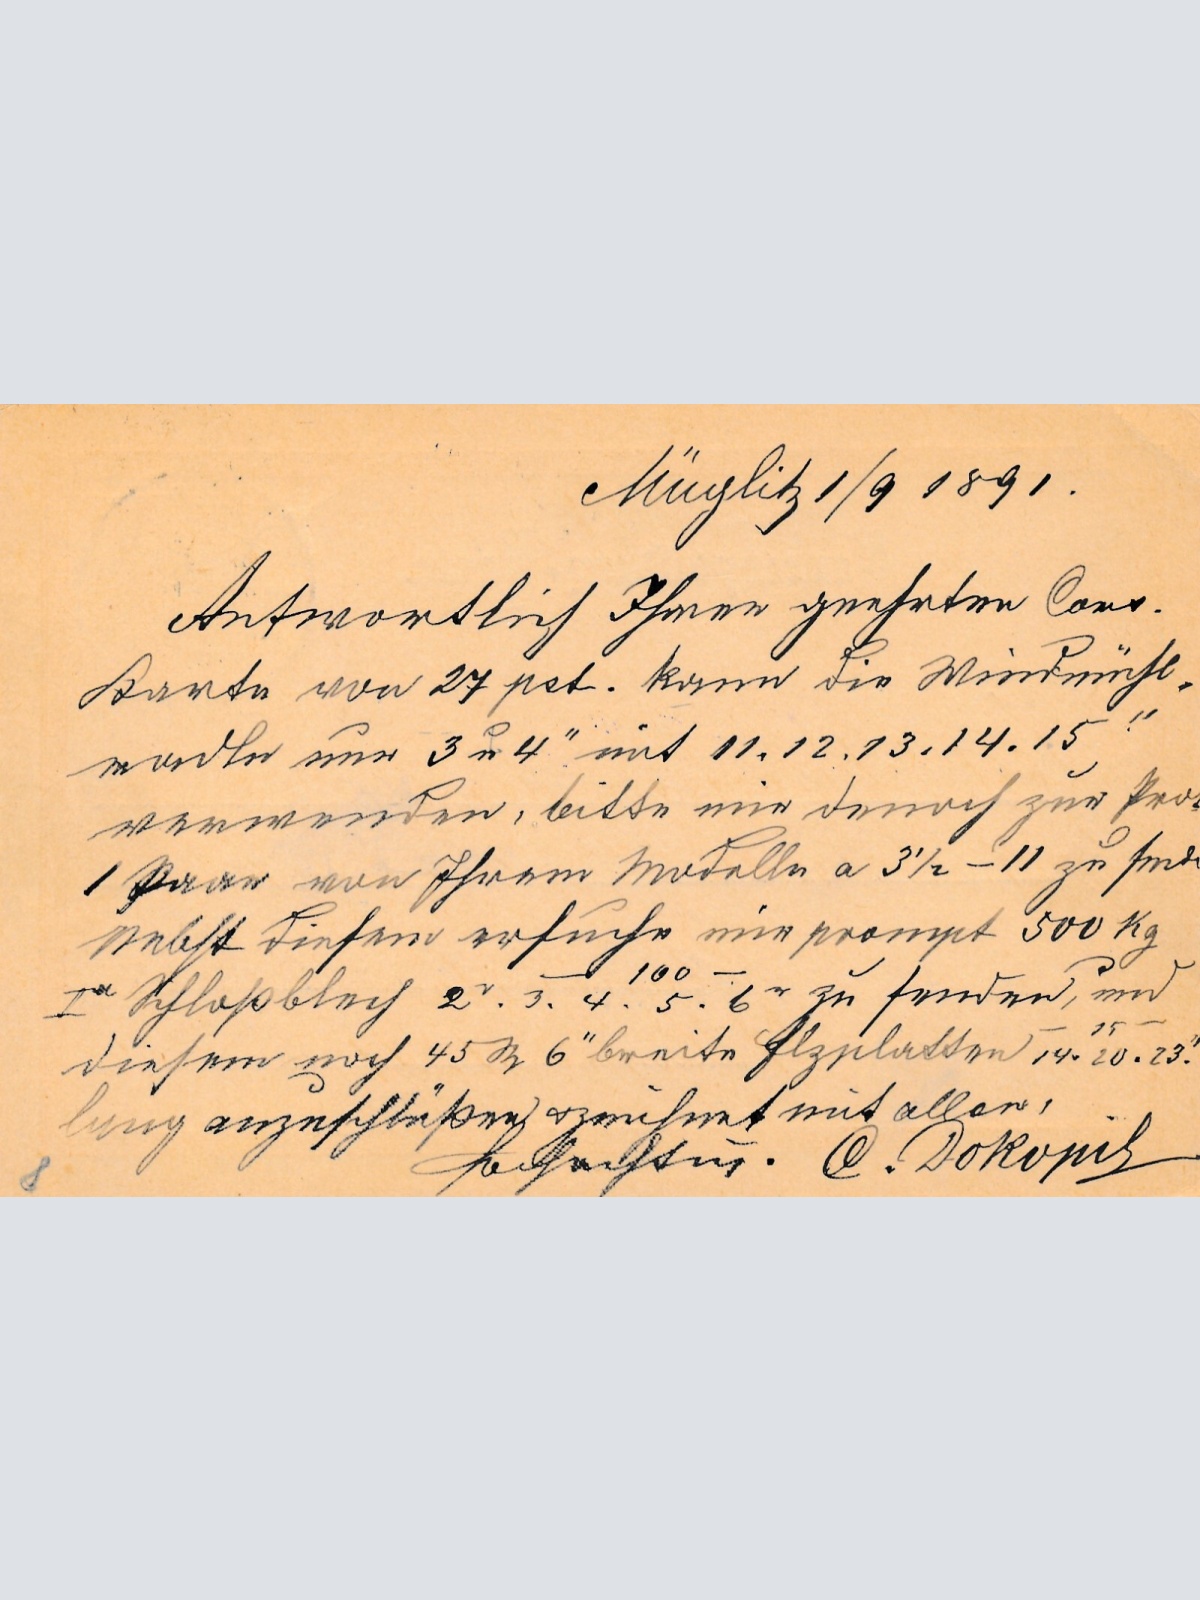 Müglitz 1/9 1891.
Antwortlich Ihrer geehrten Corr.
Karte von 27 pst. kann die Windmühl-
modle nur 3 u 4" mit 11. 12. 13. 14. 15"
verwenden, bitte mir denoch zur Pro
1 Paar von Ihrem Modelle a 3 1/2 – 11 zu send
Nebst diesem ersuche mir prompt 500 Kg
— 100 —
Ia Schloßblech 2r. 3. 4. 5. 6r zu senden, und
— 25 —
diesem noch 45 6" breite platten 14. 20. 23."
lang anzuschlüßen zeichnet mit aller,
O. Dokopil
8